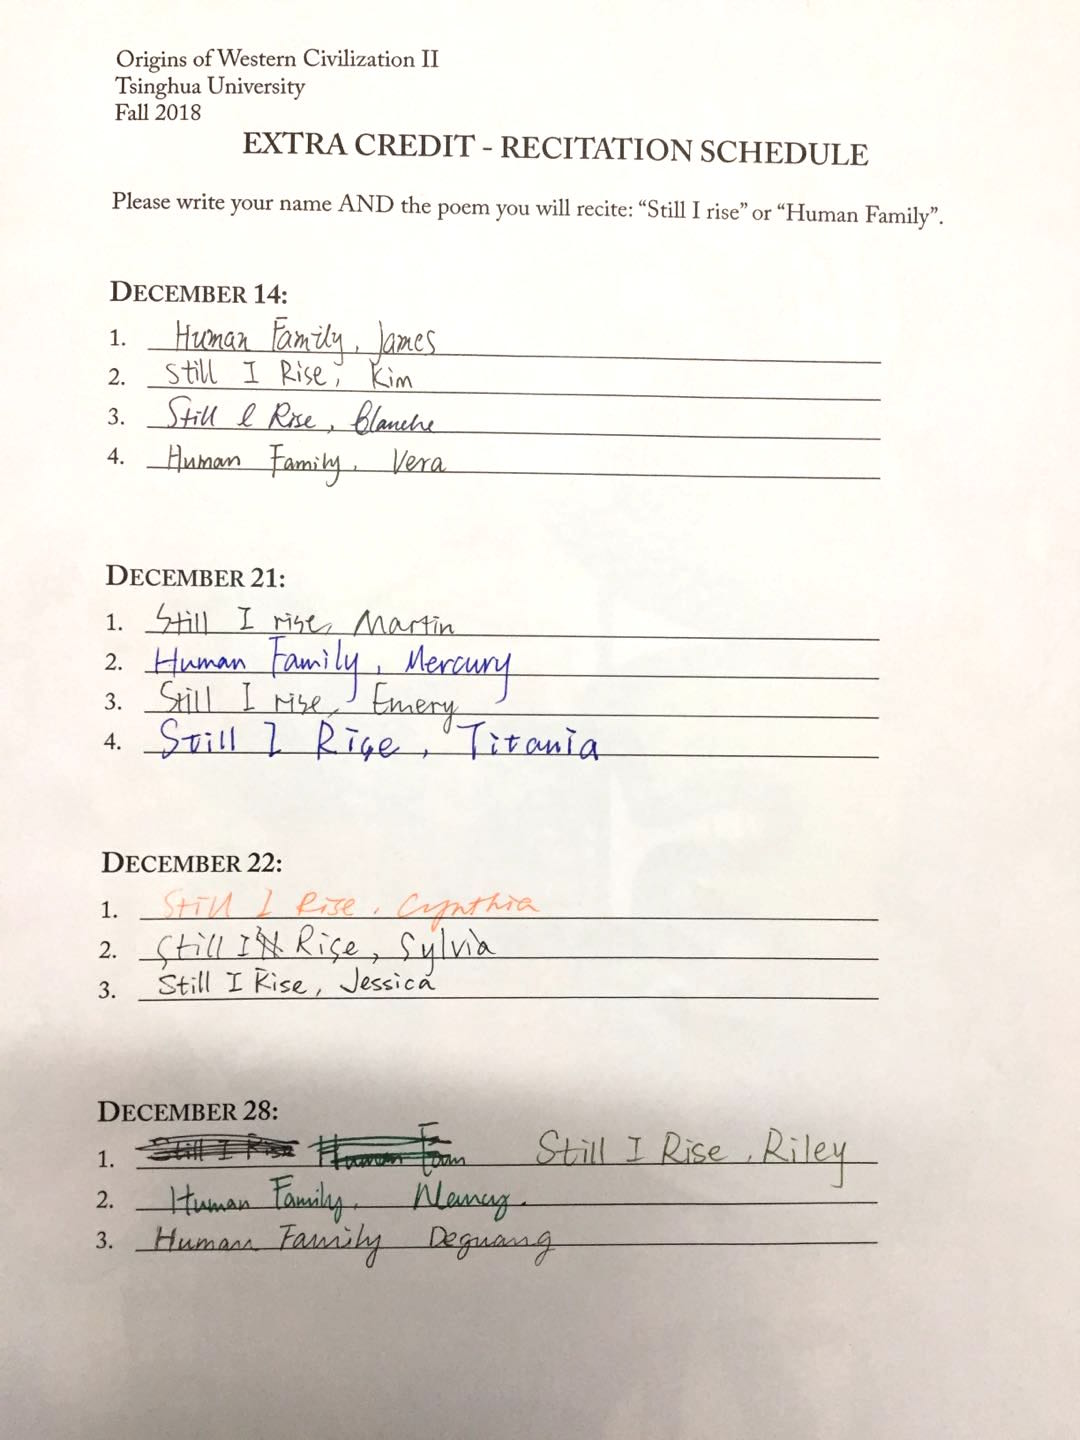 Origins of Western Civilization II
Tsinghua University
Fall 2018
EXTRA CREDIT - RECITATION SCHEDULE
Please write your name AND the poem you will recite: “Still I rise” or “Human Family”.
DECEMBER 14:
1. Human Family, James
2. Still I Rise, Kim
3. Still I Rise, Blanche
4. Human Family, Vera
DECEMBER 21:
1. Still I rise, Martin
2. Human Family, Mercury
3. Still I rise, Emery
4. Still I Rise, Titania
DECEMBER 22:
1. Still I Rise, Cynthia
2. Still I Rise, Sylvia
3. Still I Rise, Jessica
DECEMBER 28:
1. Still I Rise Human Fam Still I Rise, Riley
2. Human Family, Nancy.
3. Human Family Deguang